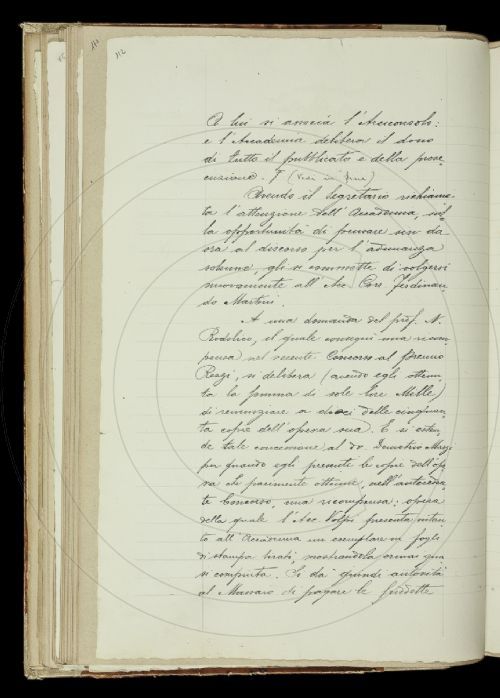 112
A lui si associa l'Arciconsolo:
e l'Accademia delibera il dono
di tutto il pubblicato e della prose-
cuzione. (Vedi in fine)
Avendo il Segretario richiama-
ta l'attenzione dell'Accademia, sul-
la opportunità di pensare sin da
ora al discorso per l'adunanza
solenne, gli si commette di volgersi
nuovamente all'Acc. Corr. Ferdinan-
do Martini.
A una domanda del prof. N.
Rodolico, il quale conseguì una ricom-
pensa nel recente Concorso al Premio
Rezzi, si delibera (avendo egli ottenu-
ta la somma di sole lire Mille)
di rinunziare a dieci delle cinquan-
ta copie dell'opera sua. E si esten-
de tale concessione al Dr. Demetrio Marzi
per quando egli presenti le copie dell'ope-
ra che parimente ottenne, nell'anteceden-
te Concorso, una ricompensa; opera
della quale l'Acc. Volpi presenta intan-
to all'Accademia un esemplare in fogli
di stampa tirati, mostrandola ormai qua-
si compiuta. Si dà quindi autorità
al Massaro di pagare le suddette